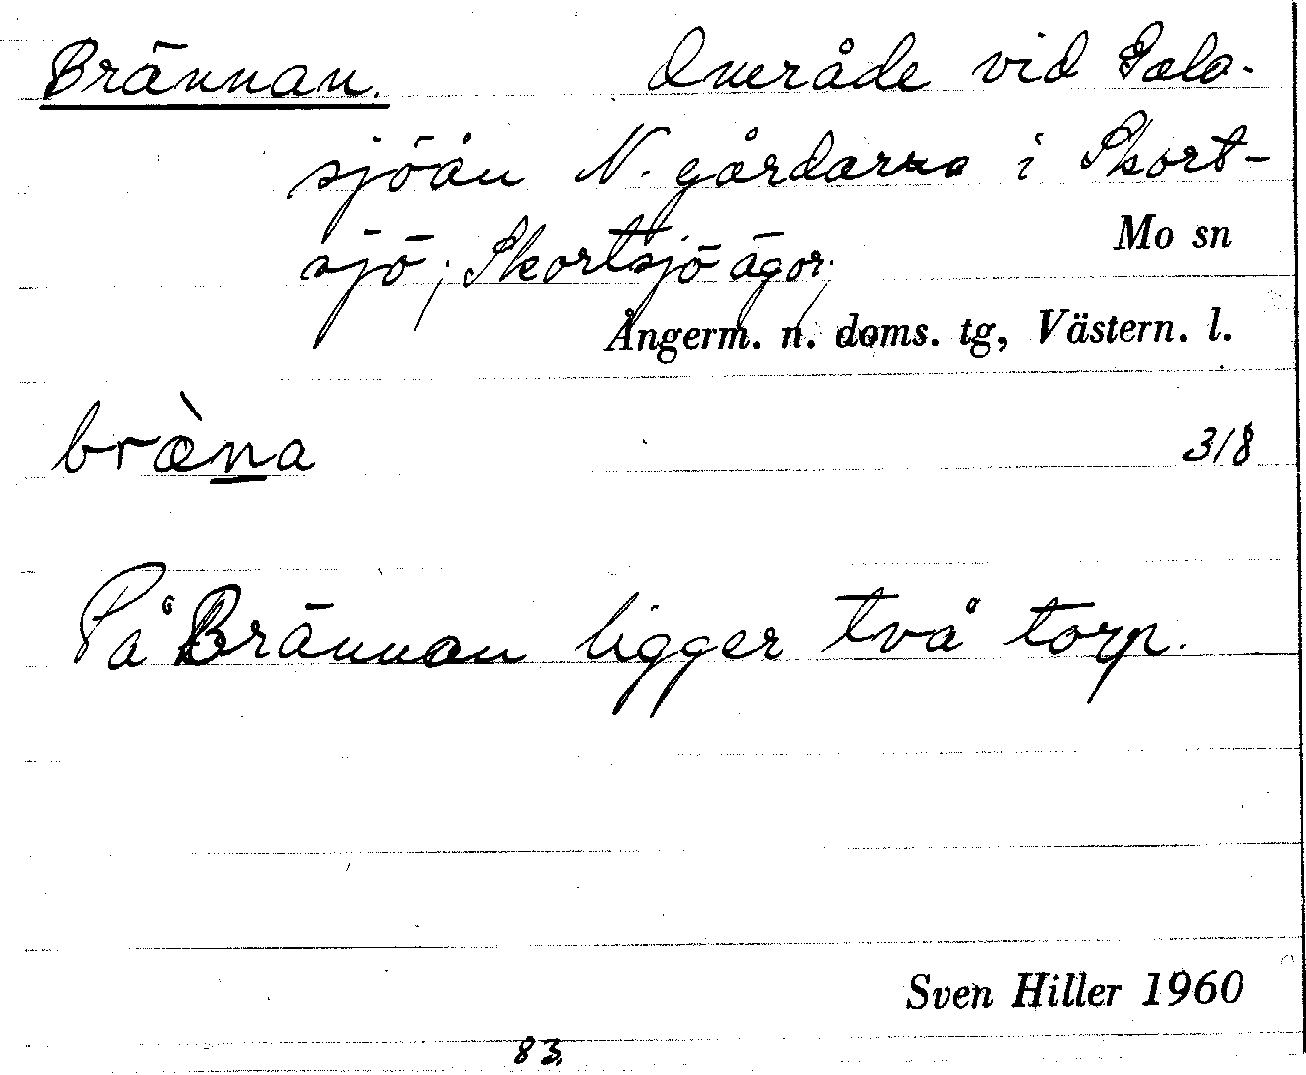 Brännan. Område vid Galasjöån N. gårdarna i Skort-
sjö; Skortsjö ägor;
Mo sn
Ångerm. n. doms. tg, Västern. l.
bræ̀na 318
På Brännan ligger två torp.
Sven Hiller 1960
83.